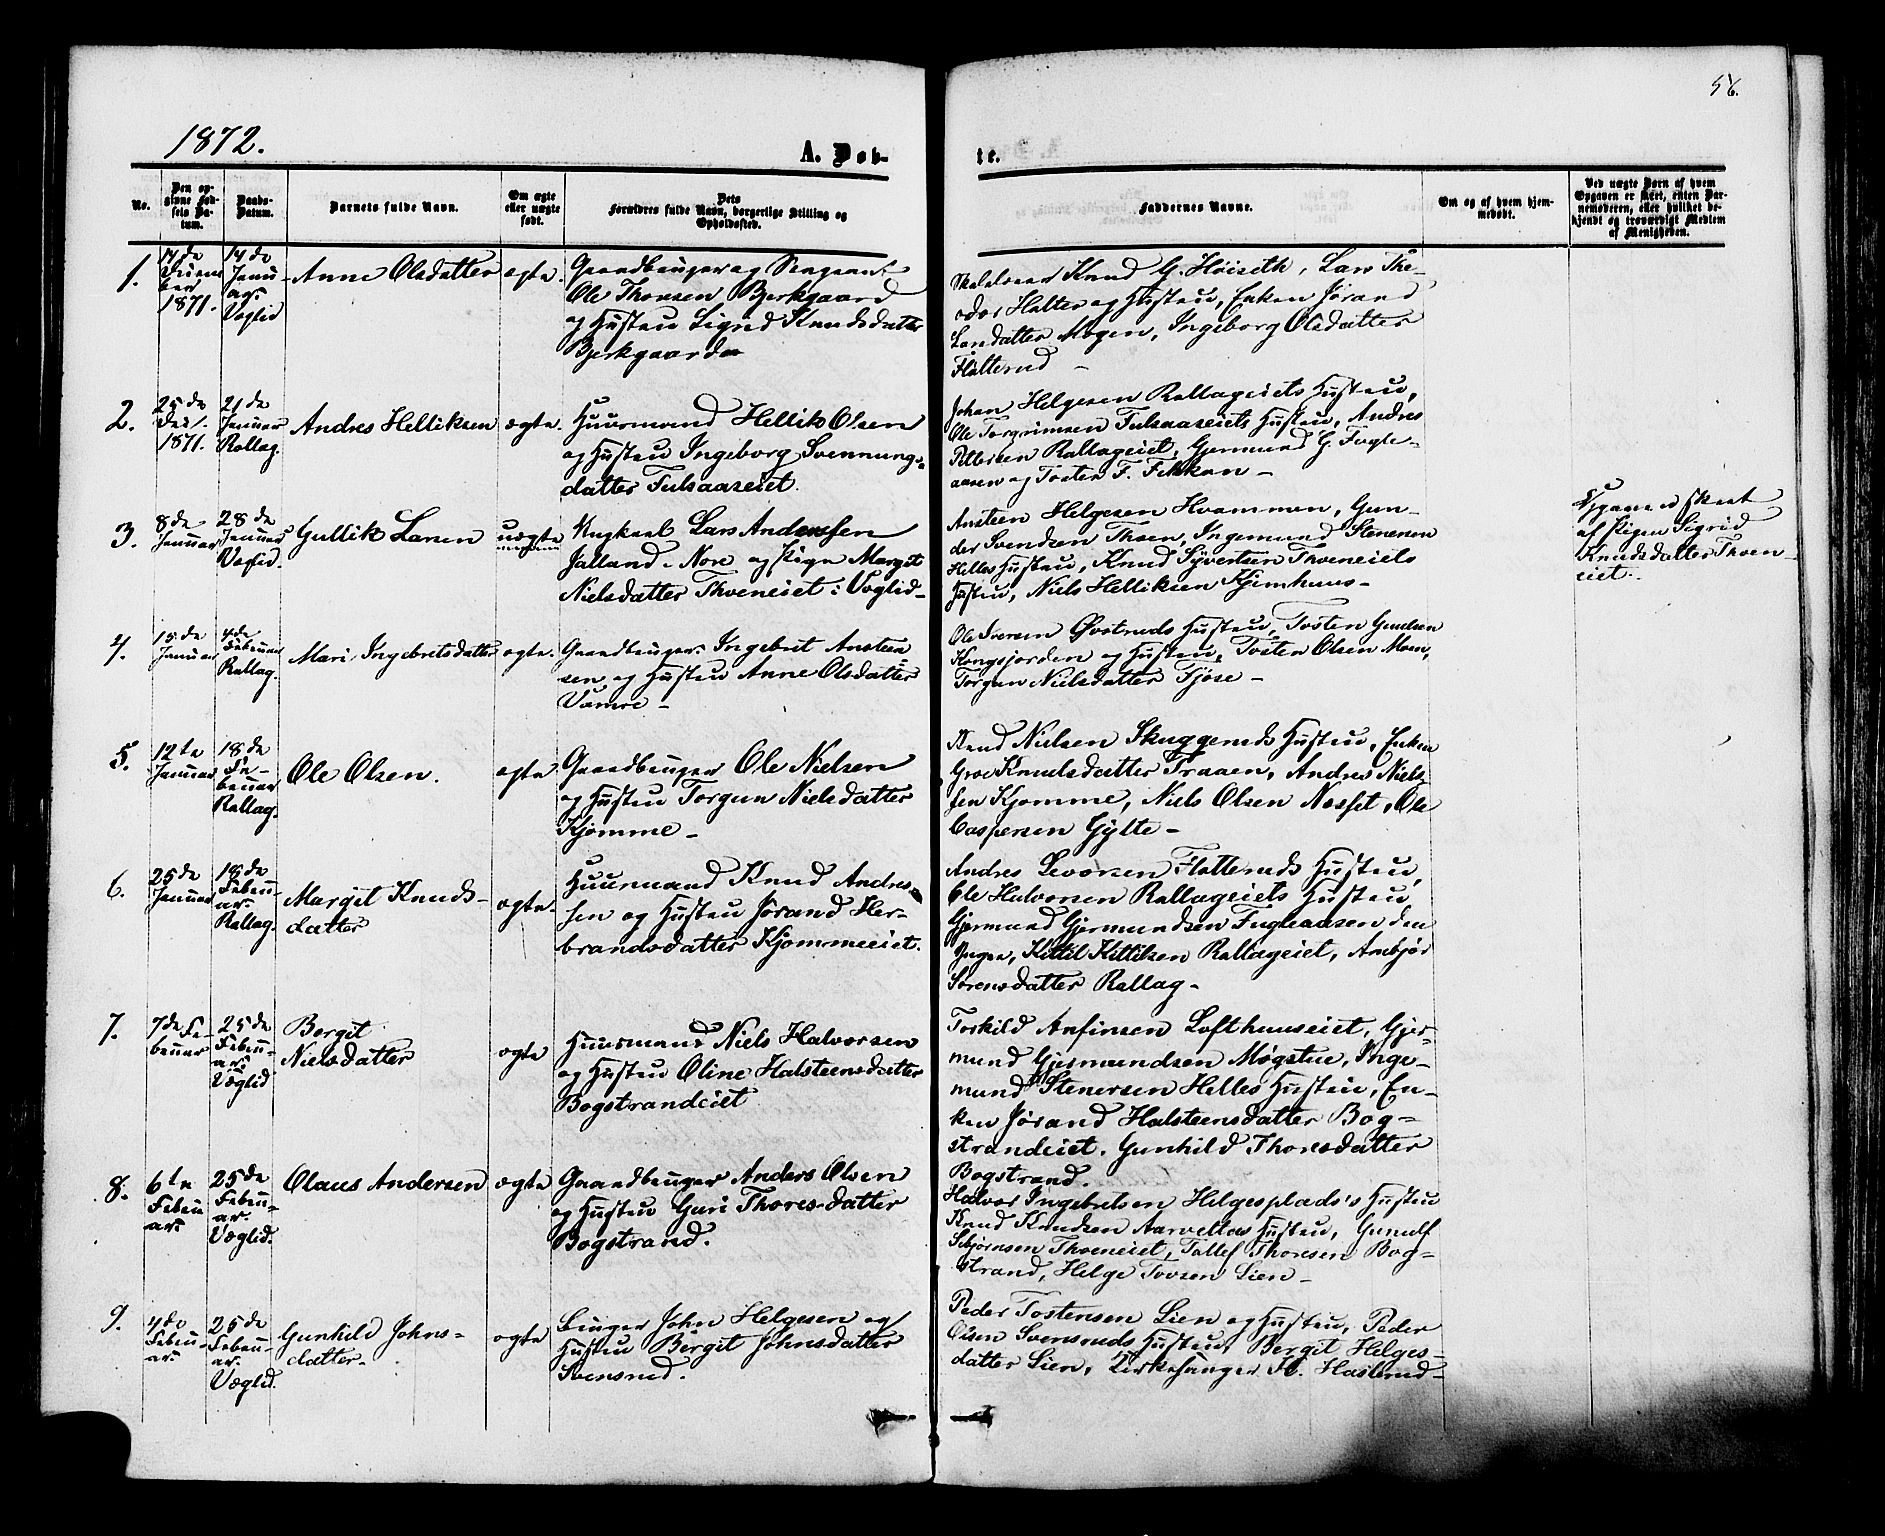 56.
1872.
A. Døb-
te.
No.
Den op-
givne Fød-
sels Da-
tum.
Daabs-
Datum.
Barnets fulde Navn.
Om ægte
eller uægte
født.
Dets
Forældres fulde Navn, borgerlige Stilling og
Opholdssted.
Faddernes Navne.
Om og af hvem hjem-
medøbt.
Ved uægte Børn af hvem
Opgaven er skeet, enten Bar-
nemoderen, eller hvilket be-
kjendt og troværdigt Medlem
af Menigheden.
1.
14de
1871.
14de
Janu-
ar.
Veglid
Anne Olsdatter
ægte.
Gaardbruger og Sergeant
Ole Thorsen Bjerkgaard
og Hustru Sigrid Knudsdatter
Bjerkgaard
Skolelærer Knud G. Høiseth, Lars The-
odor Holter og Hustru, Enken Jørand
Larsdatter Mogen, Ingeborg Olsdatter
Flatterud
2.
25de
Dec.
1871.
21de
Januar
Rollag.
Andres Helliksen
ægte.
Huusmand Hellik Olsen
og Hustru Ingeborg Svennungs-
datter Tulsaaseiet.
Johan Helgesen Rollageiets Hustru,
Ole Torgrimsen Tulsaaseiets Hustru, Andres
Pettersen Rollageiet, Gjermund G. Fugle-
aasen og Tosten F. Fekkan
3.
8de
Januar
28de
Januar
Veglid.
Gullik Larsen
uægte
Ungkarl Lars Anderssen
Jalland i Nore og Pige Margit
Nielsdatter Thoeneiet i Veglid
Ansteen Helgesen Hvammen, Gun-
der Svendsen Thoen, Ingemund Stenersen
Helles Hustru, Knud Syvertsen Thoeneiets
Hustru, Niels Helliksen Kjemhuus
Opgaven skeet
af Pigen Sigrid
Knudsdatter Thoen-
eiet.
4.
15de
Januar
4de
Februar
Rollag.
Mari Ingebritsdatter
ægte.
Gaardbruger Ingebrit Ansteen-
sen og Hustru Anne Olsdatter
Vamre
Ole Iversen Øvstruds Hustru, Tosten Gundsen
Kongsjorden og Hustru, Tosten Olsen Moen,
Torgun Nielsdatter Fjøse
5.
12te
Januar
18de
Fe-
bruar
Rollag.
Ole Olsen.
ægte
Gaardbruger Ole Nielsen
og Hustru Torgun Nielsdatter
Kjømme
Knud Nielsen Skuggeruds Hustru, Enken
Groe Knudsdatter Traaen, Andres Niels-
sen Kjomme, Niels Olsen Næsset, Ole
Caspersen Gylte
6.
25de
Januar
18de
Febru-
ar.
Rollag.
Margit Knuds-
datter
ægte
Huusmand Knud Andres-
sen og Hustru Jørand Her-
brandsdatter Kjømmeeiet.
Andres Levorsen Flatteruds Hustru,
Ole Halvorsen Rollageiets Hustru,
Gjermund Gjermundsen Fugleaasen den
Yngre, Kittil Kittilsen Rollageiet, Ambjør
Sørensdatter Rollag
7.
7de Fe-
bruar
25de
Febru-
ar.
Veglid
Bergit
Nielsdatter
ægte
Huusmand Niels Halvorsen
og Hustru Oline Halsteensdatter
Bogstrandeiet
Torkild Anfinsen Lofthuuseiet, Gjer-
mund Gjermundsen Møgstue, Inge-
mund Stenersen Helles Hustru, En-
ken Jørand Halsteensdatter Bog-
strandeiet, Gunhild Thoresdatter
Bogstrand.
8.
6te
Febru-
ar.
25de
Febru-
ar.
Veglid.
Olaus Andersen
ægte
Gaardbruger Anders Olsen
og Hustru Guri Thoresdatter
Bogstrand.
Halvor Ingebretsen Helgesplads's Hustru
Knud Knudsen Aarveltas Hustru, Gunulf
Sebjørnsen Thoeneiet, Tollef Thoresen Bog-
strand, Helge Tovsen Lien
9.
4de
Febru-
ar.
25de
Febru-
ar.
Veglid.
Gunhild Johns-
datter
ægte
Bruger John Helgesen og
Hustru Bergit Johnsdatter
Svensrud.
Peder Tostensen Lien og Hustru, Peder
Olsen Svensruds Hustru, Bergit Helges-
datter Lien, Kirkesanger H. Haslerud